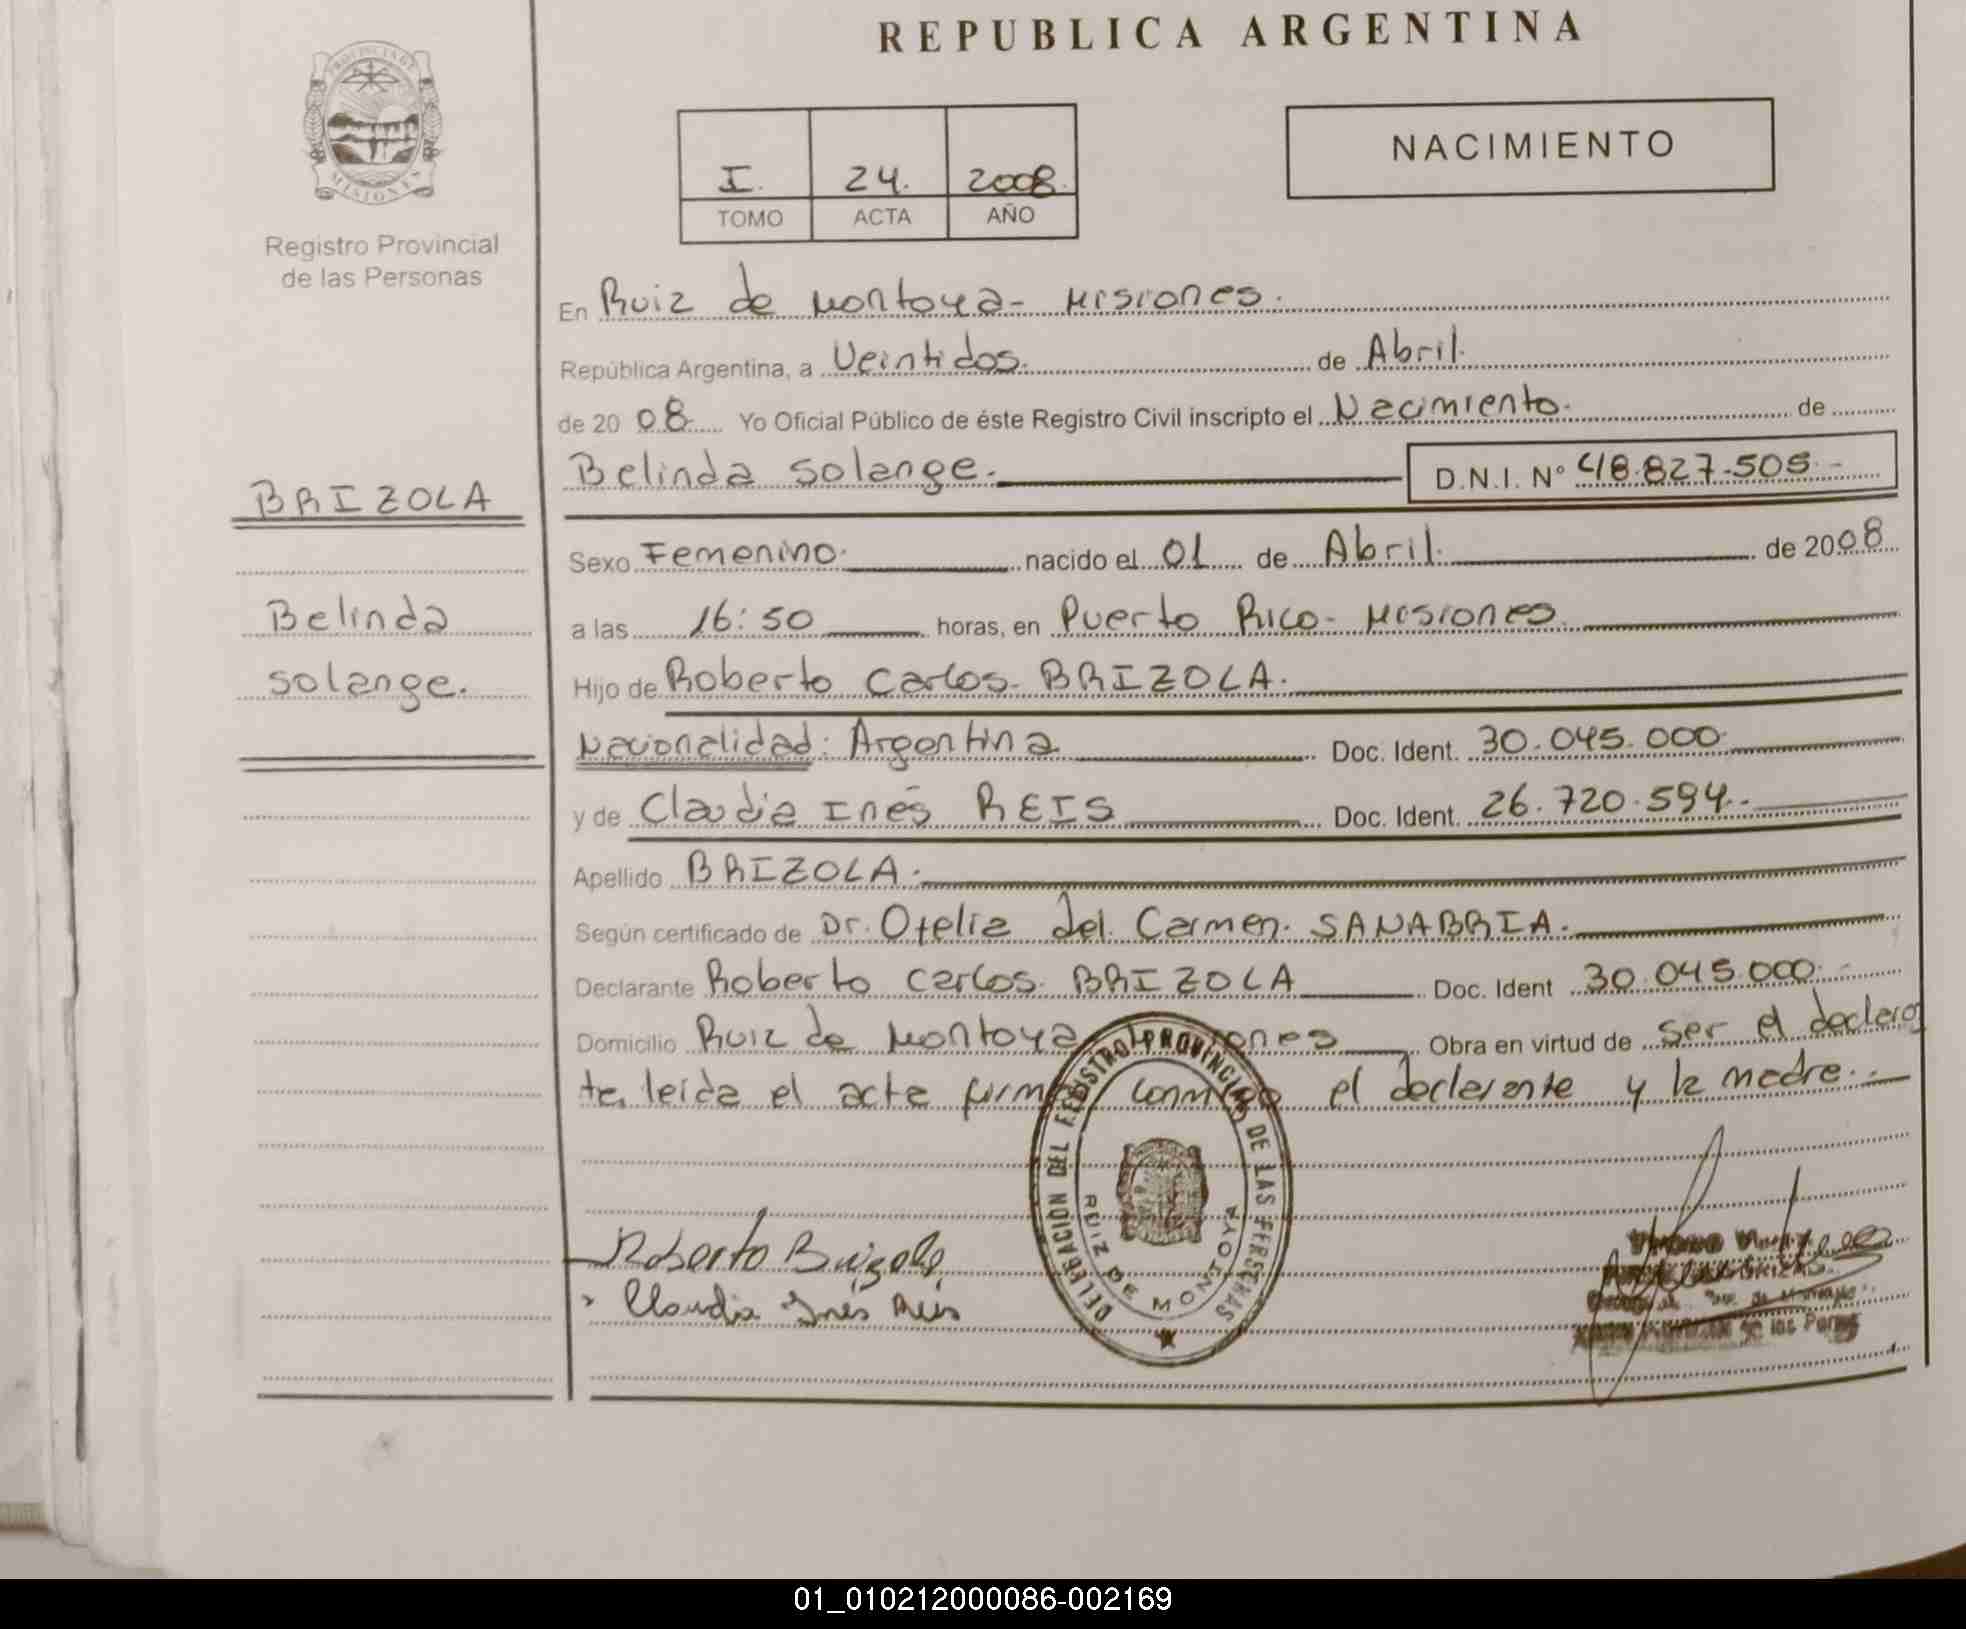 REPUBLICA ARGENTINA
PROVINCIA DE
MISIONES
Registro Provincial
de las Personas
I. 24. 2008.
TOMO ACTA AÑO
NACIMIENTO
En Ruiz de Montoya- Misiones.
República Argentina, a Veintidos. de Abril.
de 20 08 Yo Oficial Público de éste Registro Civil inscripto el Nacimiento. de
Belinda Solange. D.N.I. Nº 48.827.505.-
BRIZOLA
Belinda
Solange.
Sexo Femenino. nacido el 01 de Abril. de 2008
a las 16:50 horas, en Puerto Rico- Misiones.
Hijo de Roberto Carlos- BRIZOLA.
Nacionalidad: Argentina Doc. Ident. 30.045.000.
y de Claudia Inés REIS Doc. Ident. 26.720.594.-
Apellido BRIZOLA.
Según certificado de Dr. Otelia del Carmen. SANABRIA.
Declarante Roberto Carlos. BRIZOLA Doc. Ident 30.045.000.-
Domicilio Ruiz de Montoya Obra en virtud de ser el declaran
te, leida el acta conmigo el declarante y la madre.-
DELEGACION DEL REGISTRO PROVINCIAL DE LAS PERSONAS
RUIZ DE MONTOYA
Roberto Brizola
Claudia Inés Reis
de las
01_010212000086-002169